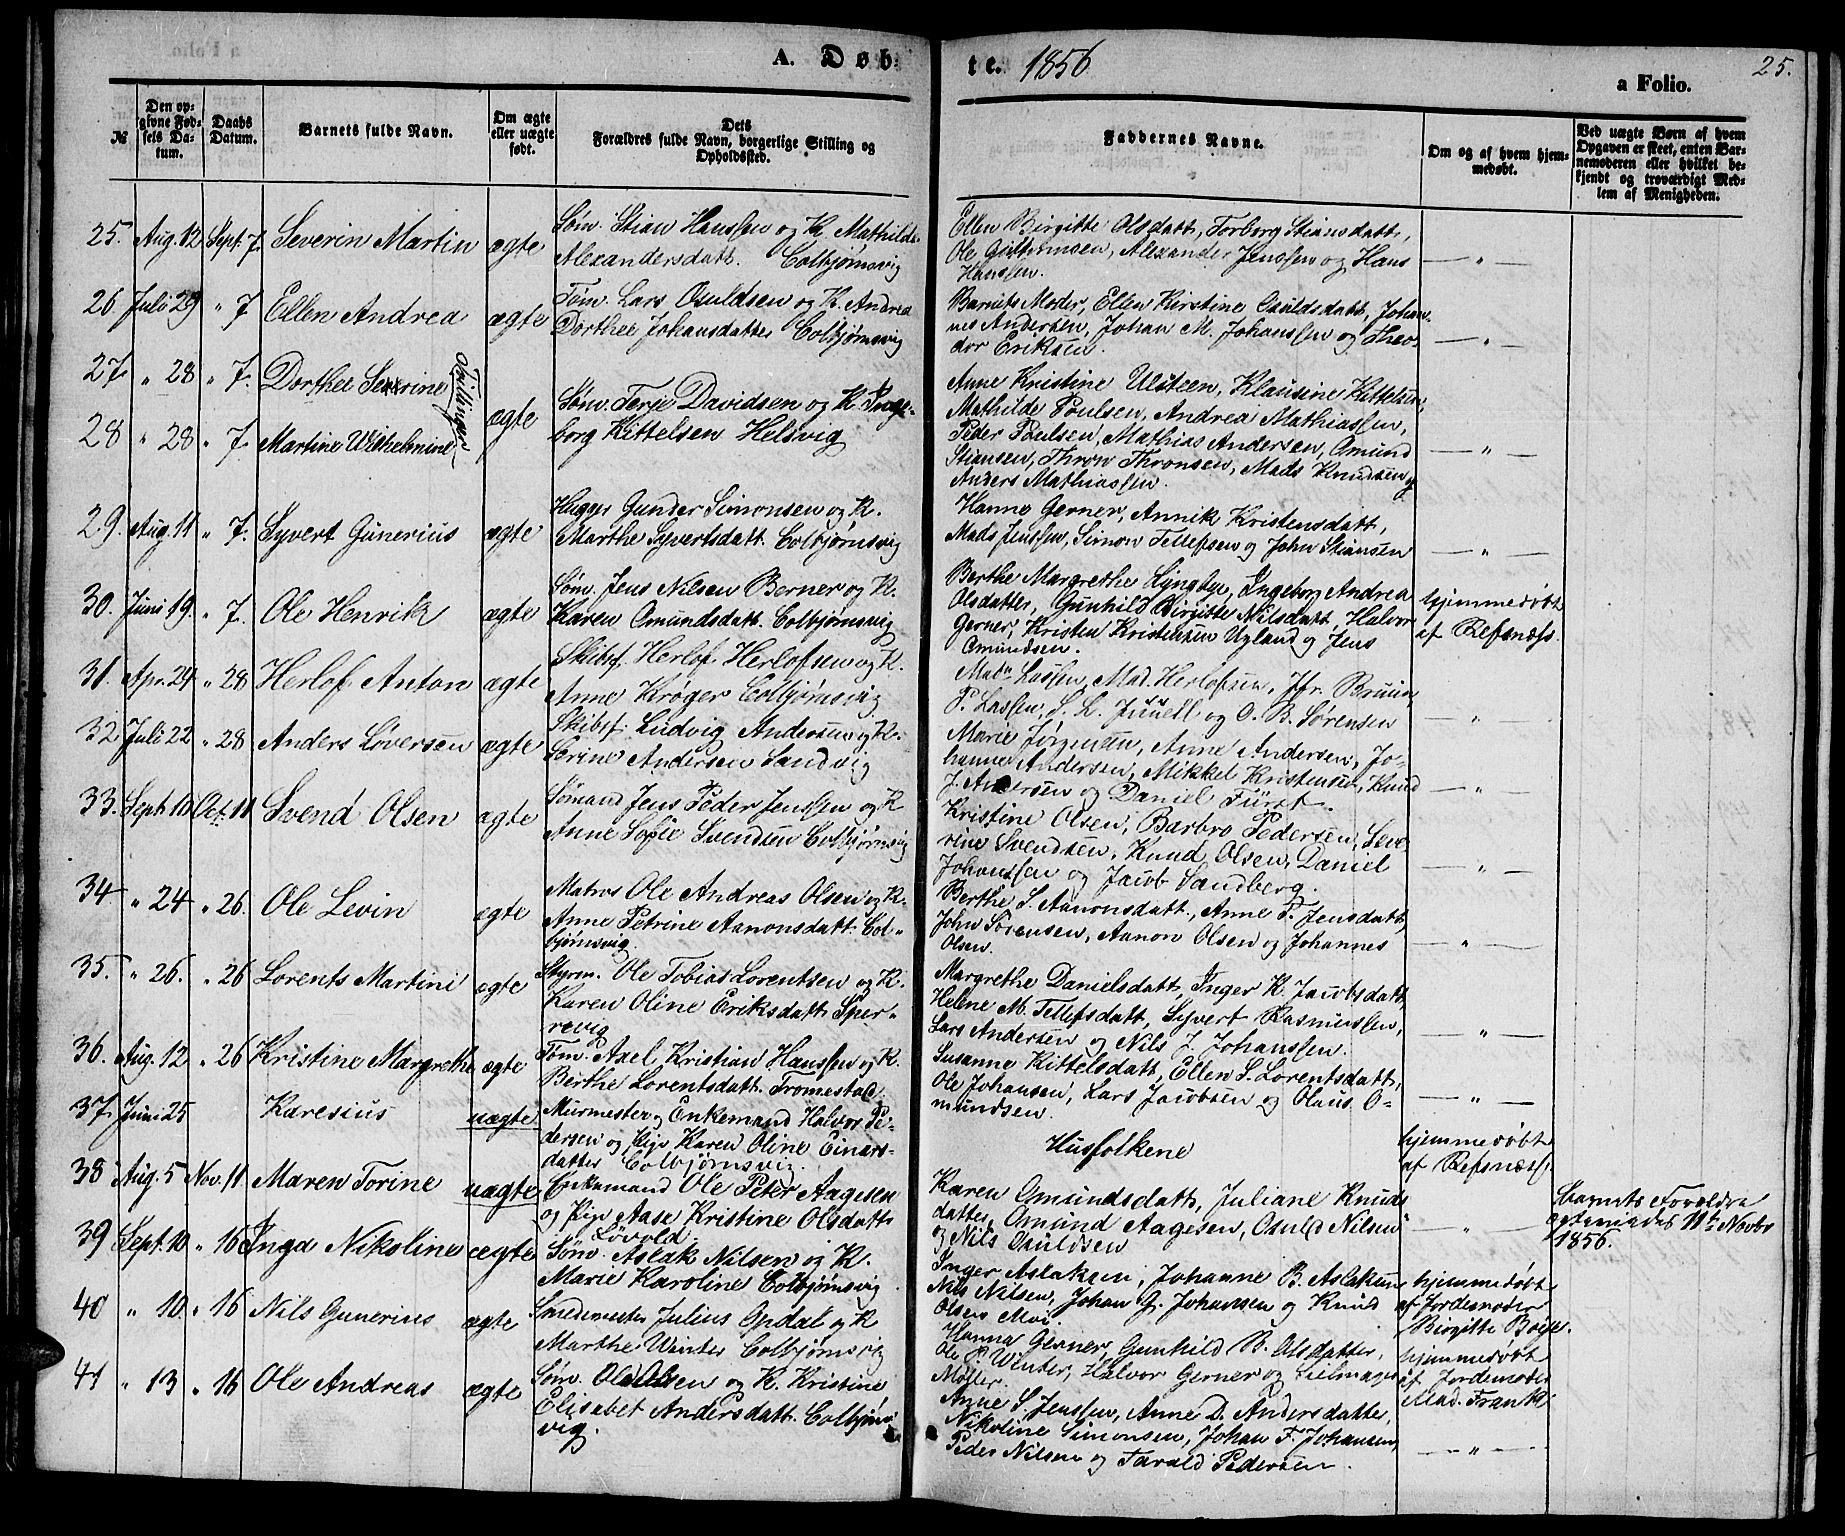 A. Døb-
te. 1856
a Folio.
25.
№
Den op-
givne Fød-
sels Da-
tum.
Daabs
Datum.
Barnets fulde Navn.
Om ægte
eller uægte
født.
Dets
Forældres fulde Navn, borgerlige Stilling og
Opholdssted.
Faddernes Navne.
Om og af hvem hjem-
medøbt.
Ved uægte Børn af hvem
Opgaven er skeet, enten Bar-
nemoderen eller hvilket be-
kjendt og troværdigt Med-
lem af Menigheden.
25. Aug. 12 Sept. 7. Severin Martin ægte
Søm. Stian Hanssen og K. Mathilde
Alexandersdatt. Colbjørnsvig
Ellen Birgitte Olsdatt, Torborg Stiansdatt,
Ole Guttelmsen, Alexander Jenssen og Hans
Hanssen.
— " —
26 Juli 29 " 7 Ellen Andrea ægte
Tøm. Lars Osuldsen og K. Andrea
Dorthee Johansdatter Colbjørnsvig
Barnets Moder, Ellen Kirstine Osuldsdatt, Johan-
nes Andersen, Johan M. Johanssen og Theo-
dor Eriksen.
— " —
27 " 28 " 7. Dorthee Severine
28 " 28 " 7. Martine Wilhelmine
Tvillinger
ægte
Søm. Terje Davidsen og K. Inge-
borg Kittelsen Helsvig
Anne Kristine Ulsteen, Klausine Kittelsen,
Mathilde Poulsen, Andrea Mathiassen,
Peder Poulsen, Mathias Andersen, Omund
Stiansen, Thron Thronsen, Mads Knudsen og
Anders Mathiassen.
— " —
29. Aug. 11 " 7. Syvert Gunerius ægte
Hugger Gunder Simonsen og K.
Marthe Syvertsdatt. Colbjørnsvig
Hanne Gerner, Annik Kristensdatt,
Mads Jenssen, Simon Tellefsen og John Stiansen
— " —
30. Juni 19. " 7. Ole Henrik ægte
Søm. Jens Nilsen Berner og K.
Karen Omundsdatt. Colbjørnsvig
Berthe Margrethe Lyngbye, Ingeborg Andrea
Olsdatter, Gunhild Birgitte Nilsdatt, Halvor
Gerner, Kristen Kristensen Ugland og Jens
Omundsen.
hjemmedøbt
af Refsnæss.
31. Apr. 24 " 28 Herlof Anton ægte
Skibsf. Herlof Herlofsen og K.
Anne Krøger Colbjørnsvig
Madm Lassen, Mad. Herlofsen, Jfr. Bruun,
P. Lassen, S. L. Juuell og O. B. Sørensen
— " —
32 Juli 22 " 28 Anders Løversen ægte
Skibsf. Ludvig Andersen og K.
Serine Andersen Sandvig
Marie Jørgensen, Anne Andersen, Jo-
hanne Andersen, Mikkel Kristensen, Knud
J. Andersen og Daniel Fürst.
— " —
33. Sept. 10 Oct. 11 Svend Olsen ægte
Sømand Jens Peder Jenssen og K
Anne Sofie Svendsen Colbjørnsvig
Kristine Olsen, Barbro Pedersen, Seve-
rine Svendsen, Knud Olsen, Daniel
Johanssen og Jacob Sandberg.
— " —
34 " 24 " 26. Ole Levin ægte
Matros Ole Andreas Olsen og K.
Anne Petrine Aanonsdatt. Col-
bjørnsvig.
Berthe S. Aanonsdatt., Anne T. Jensdatt,
John Sørensen, Aanon Olsen og Johannes
Olsen.
— " —
35. " 26. " 26 Lorents Martini ægte
Styrm. Ole Tobias Lorentsen og K.
Karen Oline Eriksdatt. Sper-
revig
Margrethe Danielsdatt, Inger K. Jacobsdatt,
Helene M. Tellefsdatt, Syvert Rasmussen,
Lars Andersen og Nils J. Johanssen.
— " —
36. Aug. 12 " 26 Kristine Margrethe ægte
Tøm. Axel Kristian Hanssen og K.
Berthe Lorentsdatt. Tromestad
Susanne Kittelsdatt, Ellen S. Lorentsdatt,
Ole Johansen, Lars Jacobsen og Olaus O-
mundsen.
— " —
37. Juni 25 Karesius uægte
Murmester og Enkemand Halvor Pe-
dersen og Pige Karen Oline Einars-
datter Colbjørnsvig.
Husfolkene
hjemmedøbt
af Refsnæss
38 Aug. 5 Nov. 11. Maren Torine uægte
Enkemand Ole Peter Aagesen
og Pige Aase Kristine Olsdatt
Løvold.
Karen Omundsdatt, Juliane Knuds-
datter, Omund Aagesen, Osuld Nilsen
og Nils Osuldsen
— " —
Barnets Forældre
ægteviedes 11te Novbr
1856.
39 Sept. 10 " 16 Inga Nikoline ægte
Søm. Aslak Nilsen og K.
Marie Karoline Colbjørnsvig
Inger Aslaksen, Johanne B. Aslaksen
Nils Nilsen, Johan G. Johansen og Knud
Olsen Moi.
hjemmedøbt
af Jordemoder
Birgitte Boije.
40 " 10 " 16 Nils Gunerius ægte
Smedemester Julius Opdal og K
Marthe Winter Colbjørnsvig
Hanna Gerner, Gunhild B. Olsdatter,
Ole P. Winter, Halvor Gerner og Seilmager
Møller.
hjemmedøbt
af Jordemoder
Mad. Frank
41 " 13 " 16 Ole Andreas ægte
Søm. Ole Olsen og K. Kristine
Elisabet Andersdatt. Colbjørns-
vig.
Anne S. Jenssen, Anne D. Andersdatter,
Nikoline Simonsen, Johan F. Johansen,
Peder Nilsen og Tarald Pedersen.
— " —